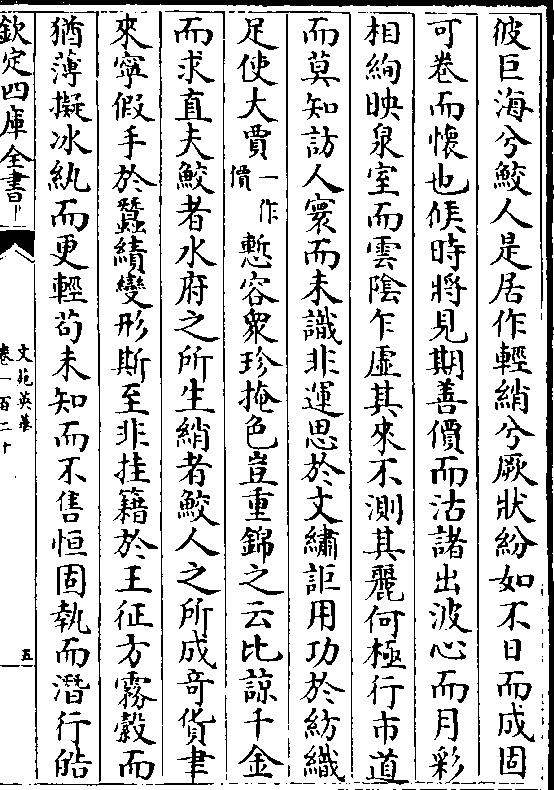 彼巨海兮鮫人是居作輕綃兮厥狀紛如不日而成固
可卷而懷也候時將見期善價而沽諸出波心而月彩
相絢映泉室而雲陰乍虛其來不測其麗何極行市道
而莫知訪人寰而未識非運思於文繡詎用功於紡織
足使大賈一作價慙容衆珍掩色豈重錦之云比諒千金
而求直夫鮫者水府之所生綃者鮫人之所成奇貨聿
來寧假手於蠶績變形斯至非挂籍於王征方霧縠而
猶薄擬冰紈而更輕苟未知而不售恒固執而潛行皓
欽定四庫全書
文苑英華
卷一百二十
五